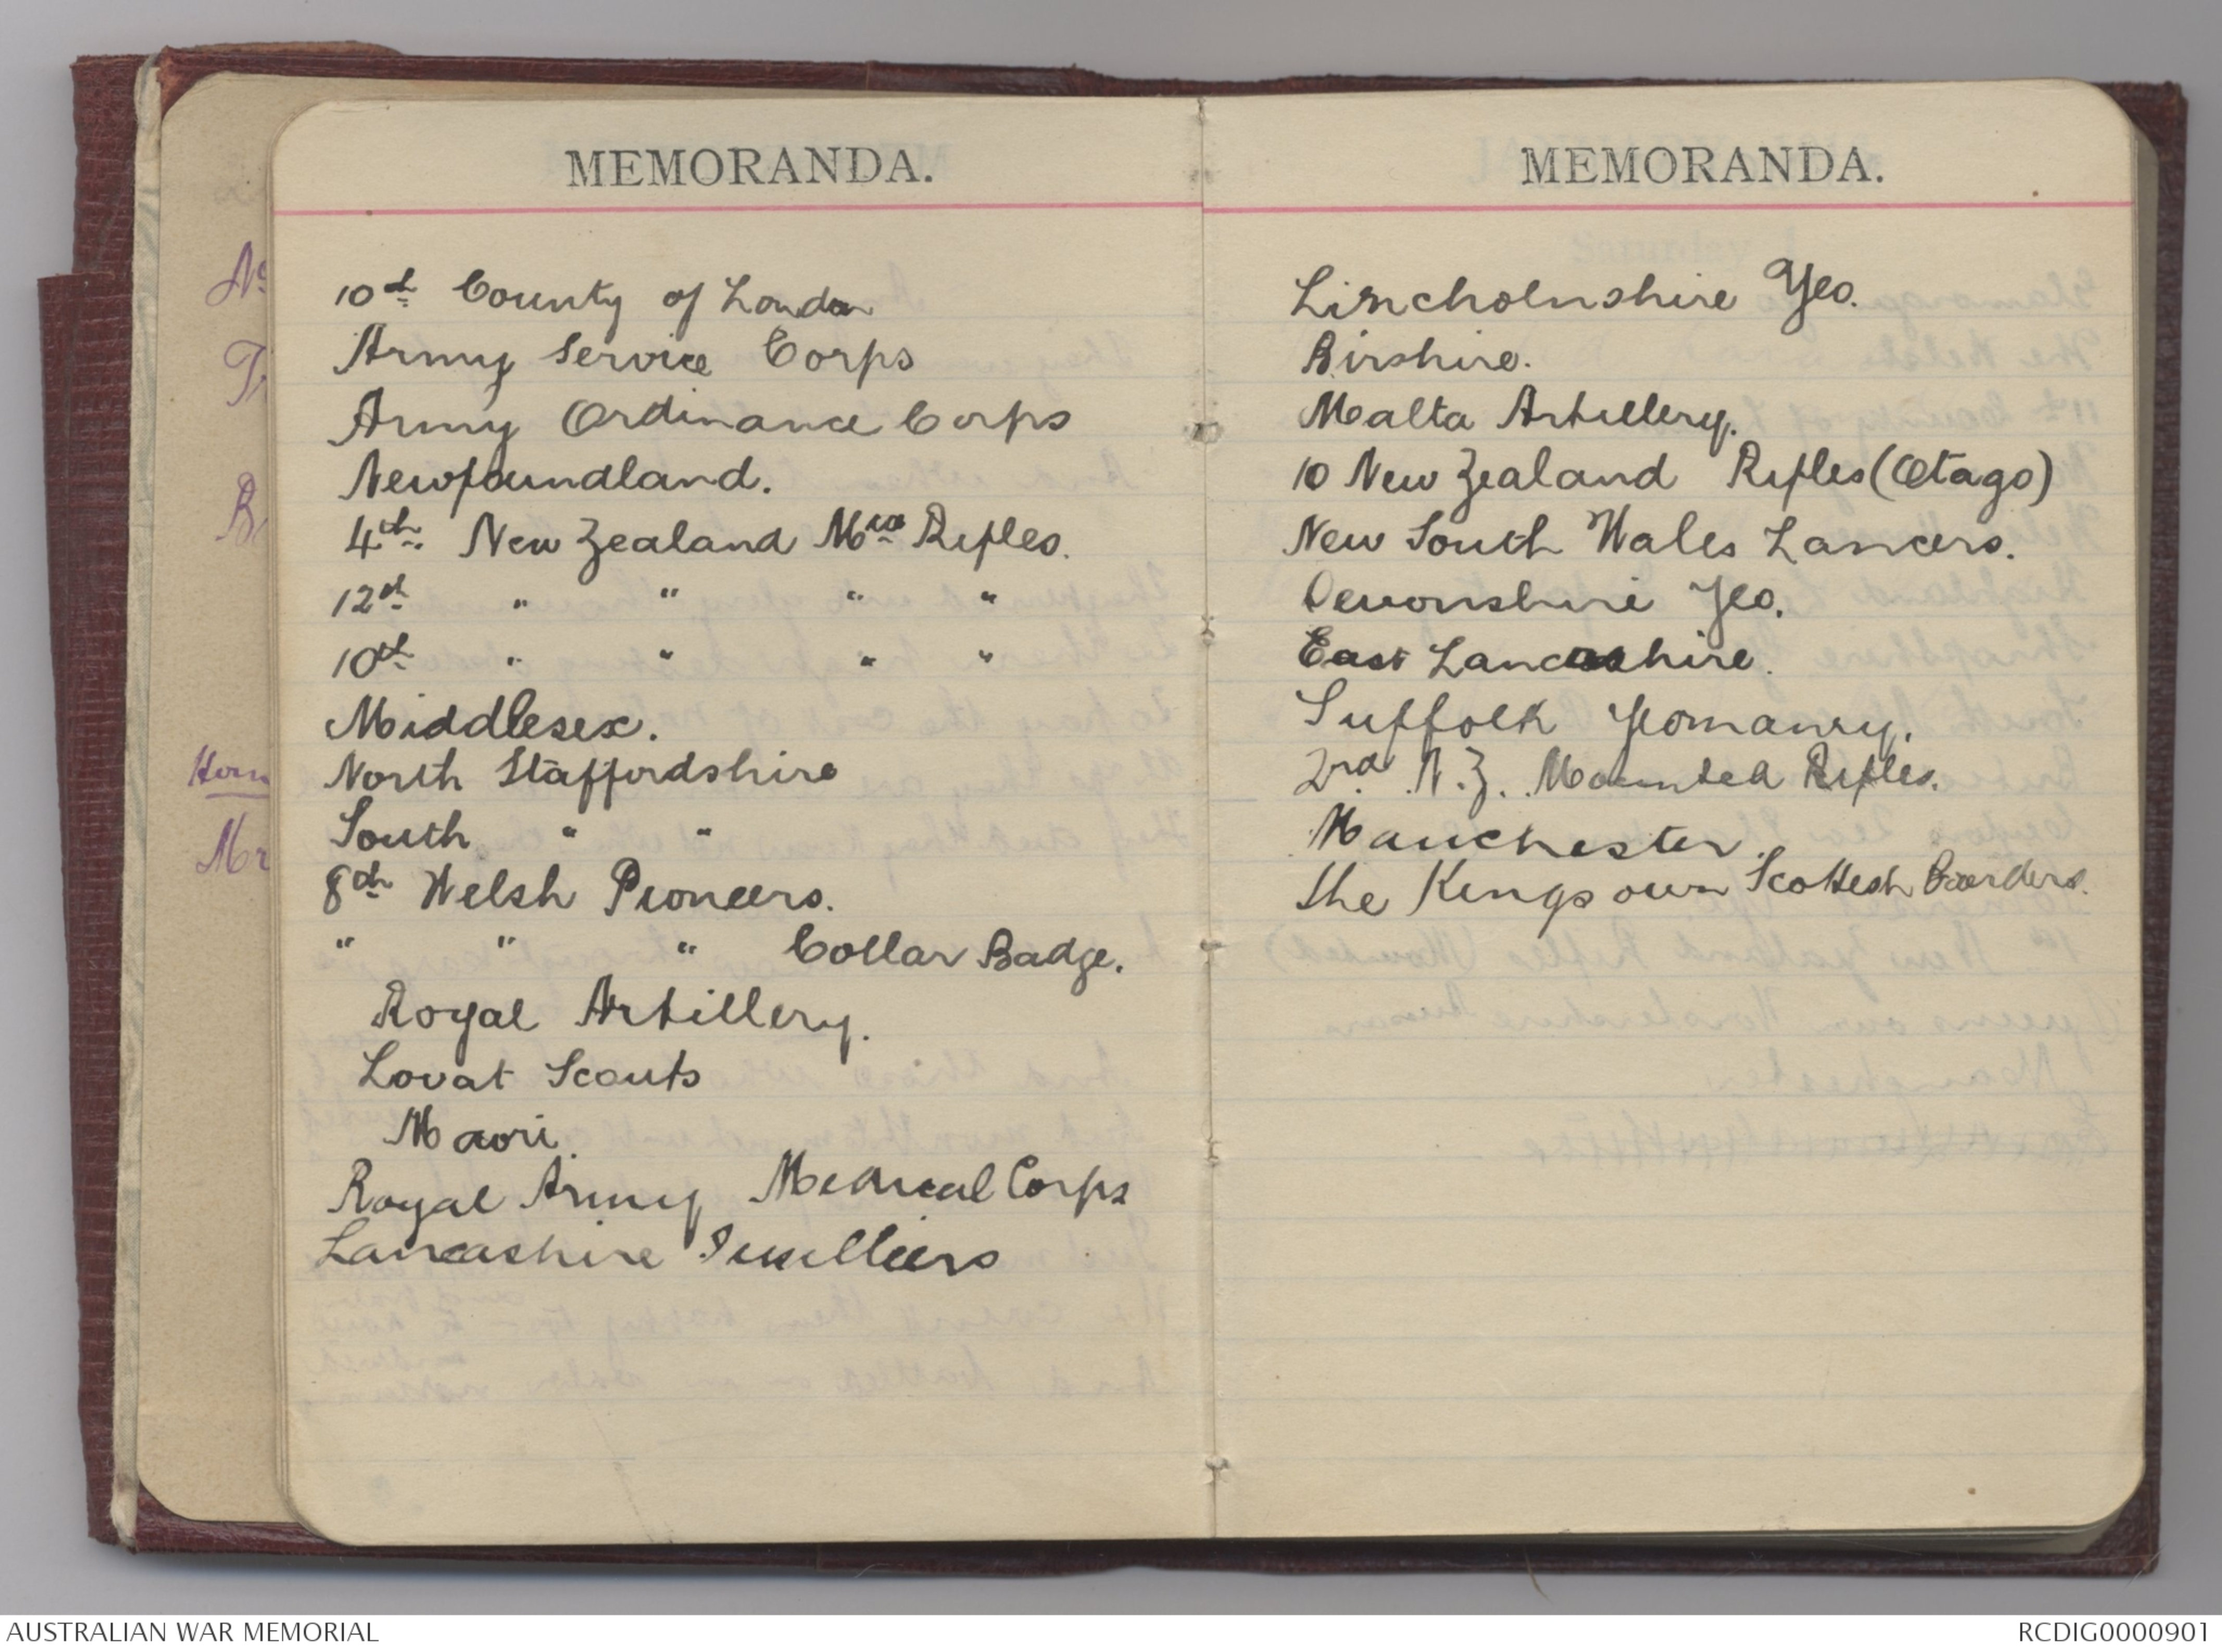 MEMORANDA.
10th County of London
Army Service Corps
Army Ordinance Corps
Newfoundland.
4th New Zealand Rifles.
12th " " " "
10th " " " "
Middlesex.
North Staffordshire
South " "
8th Welsh Pioneers.
" " " Collar Badge.
Royal Artillery.
Lovat Scouts
Maori.
Royal Army Medical Corps
Lancashire Fusilliers
MEMORANDA.
Lincholnshire Yeo.
Airshire.
Malta Artillery.
10 New Zealand Rifles (Otago)
New South Wales Lancers.
Devonshire Yeo.
East Lancashire.
Suffolk Yeomanry.
2nd N.Z. Mounted Rifles.
Manchester.
The Kings own Scottish Boerders.
AUSTRALIAN WAR MEMORIAL
RCDIG0000901